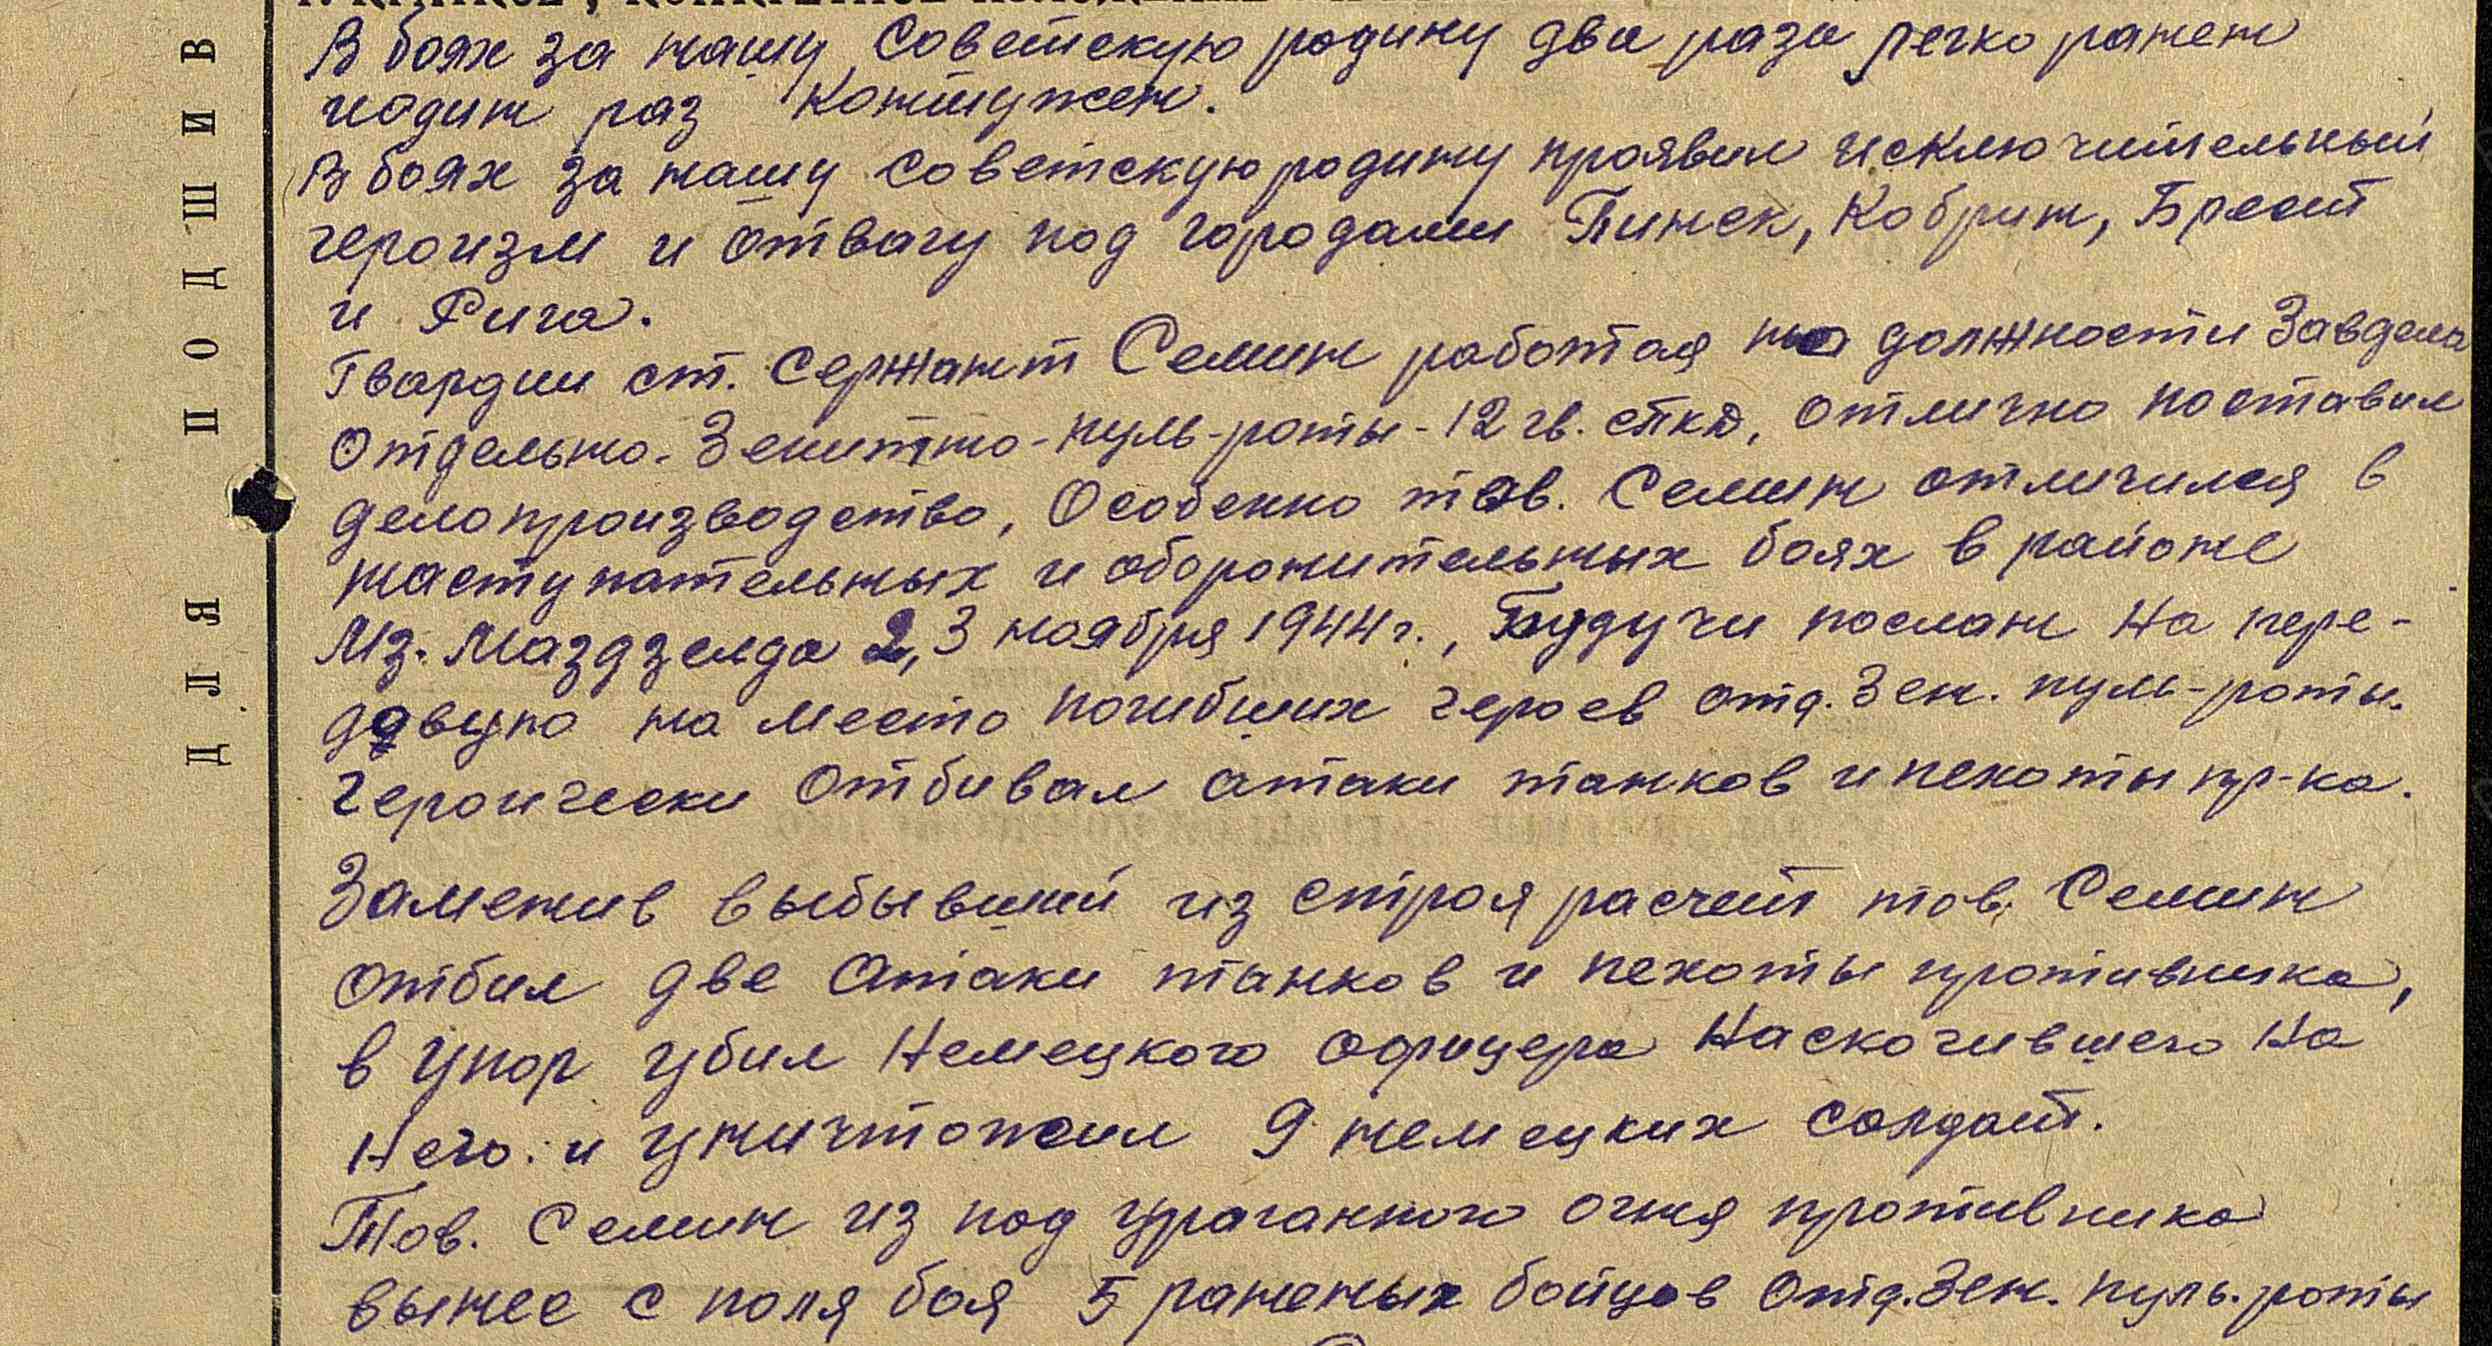 В боях за нашу Советскую родину два раза легко ранен
иодин раз контужен.
В боях за нашу советскую родину проявил исключительный
героизм и отвагу под городами Пинск, Кобрин, Брест
и Рига.
Гвардии ст. сержант Семин работая на должности Завдела
Отдельно-Зенитно-пуль-роты-12 гв. сткд, отлично поставил
делопроизводство, Особенно тов. Семин отличился в
наступательных и оборонительных боях в районе
Мз. Маздзелда 2,3 ноября 1944 г., Будучи послан на пере-
довую на место погибших героев отд. Зен. пуль-роты.
Героически отбивал атаки танков и пехоты пр-ка.
Заменив выбывший из строя расчет тов. Семин
отбил две атаки танков и пехоты противника,
в упор убил Немецкого офицера Наскочившего На
Него. и уничтожил 9 немецких солдат.
Тов. Семин из под ураганного огня противника
вынес с поля боя 5 раненых бойцов Отд. Зен. пуль. роты
ДЛЯ ПОДШИВ